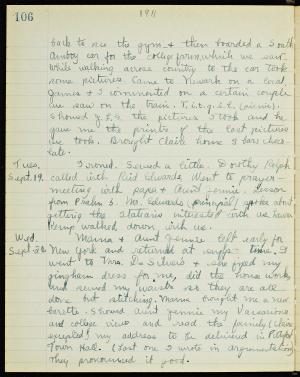 106
1911
back to see the gym & then boarded a South
Amboy car for the college farm, which we saw.
While walking across country to the car took
some pictures. Came to Newark on a local.
James & I commented on a certain couple
we saw on the train.
showed J.E.G. the pictures I took and he
gave me the prints of the last pictures
we took. Brought Claire home 3 bars choco-
late.
Tues.
Sept. 19.
I ironed. Sewed a little. Dorothy
called with Reid Edwards. Went to prayer-
meeting with papa & Aunt Jennie. Lesson
from Psalm 6. Mr. Edwards (principal) spoke about
getting the Italians interested with us here.
Kemp walked down with us.
Wed.
Sept. 20
Mama & Aunt Jennie left early for
New York and returned at supper time. I
went to Mrs. and she fixed my
gingham dress for me, did the house work,
and sewed my waists so they are all
done but stitching. Mama brought me a new
barette. Showed Aunt Jennie my Vassariana
and college views and read the family (Claire
excepted) my address to be delivered in
Town Hall. (Last one I wrote in argumentation)
They pronounced it good.